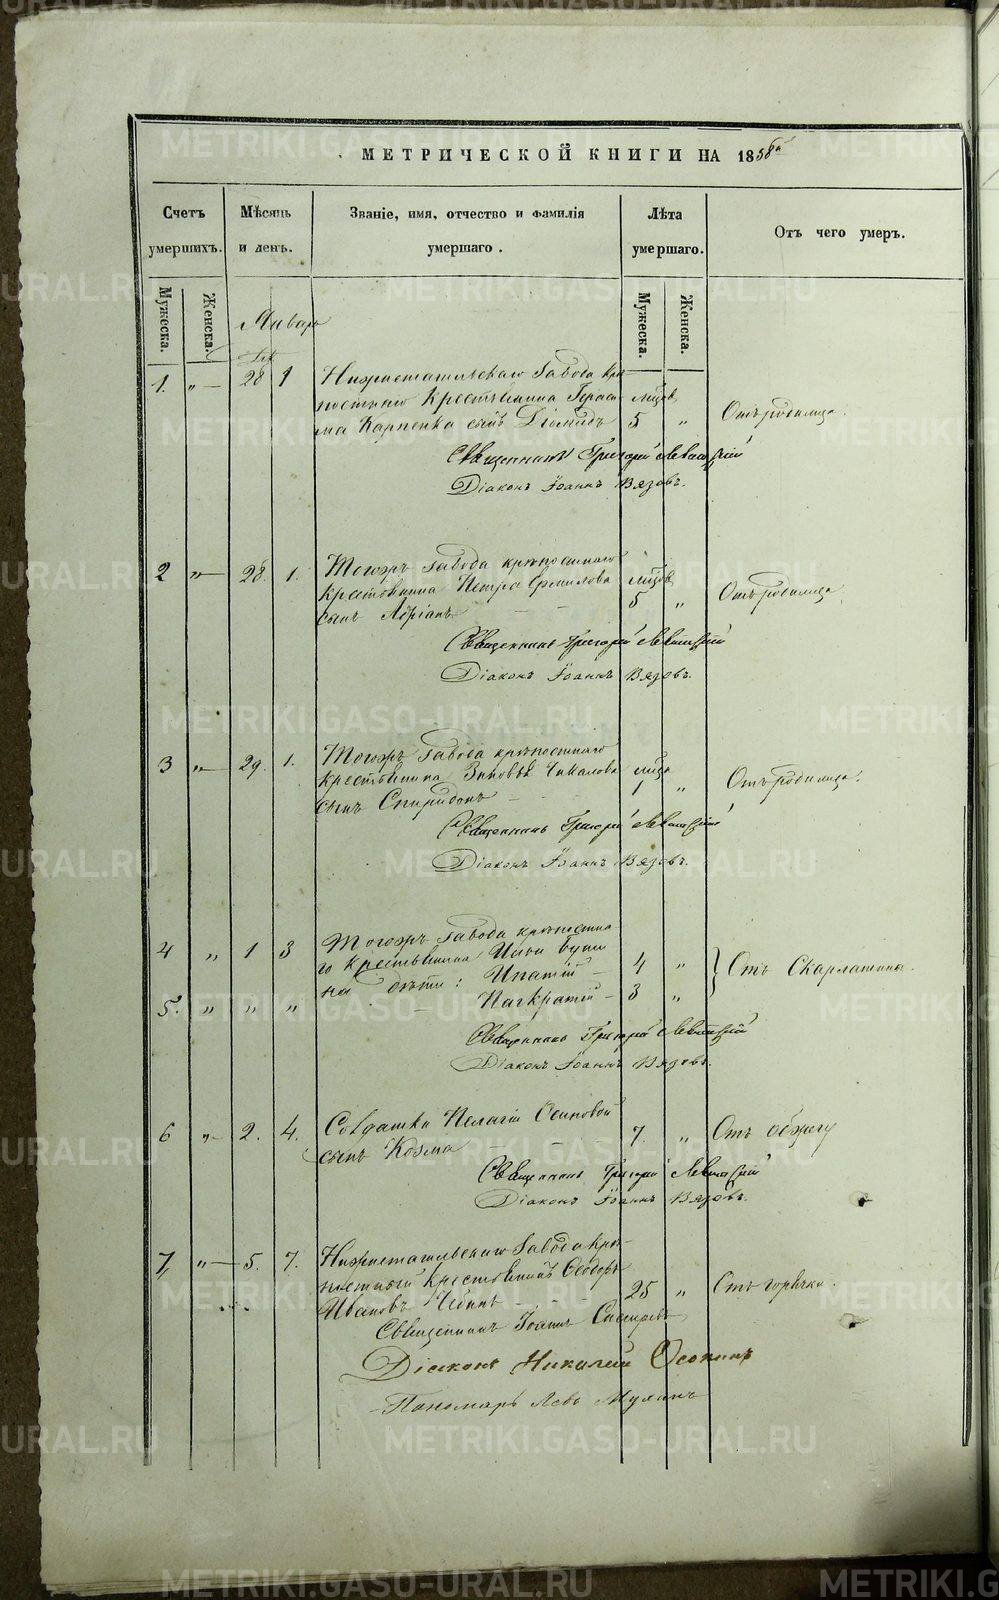 МЕТРИЧЕСКОЙ КНИГИ НА 1858й
Счетъ умершихъ.
Мѣсяцъ и день.
Званіе, имя, отчество и фамилія умершаго.
Лѣта умершаго.
Отъ чего умеръ.
Мужеска.
Женска.
Мужеска.
Женска.
Январь
1. „ 28 1 Нижнетагильскаго Завода крѣ-
постнаго крестьянина Гераси- мѣсяцъ
ма Карпенка сынъ Діомидъ 5 „ Отъ родимца.
Священникъ Григорій Левитскій
Діаконъ Іоаннъ Вязовъ.
2 „ 28. 1. Тогожъ Завода крѣпостнаго
крестьянина Петра мѣсяцъ
сынъ Адріанъ 5 „ Отъ родимца
Священникъ Григорій Левитскій
Діаконъ Іоаннъ Вязовъ.
3 „ 29. 1. Тогожъ Завода крѣпостнаго
крестьянина Зиновья Чикалова
сынъ Спиридонъ 1 „ Отъ родимца.
Священникъ Григорій Левитскій
Діаконъ Іоаннъ Вязовъ.
4 „ 1 3 Тогожъ Завода крѣпостна
го крестьянина Ильи
на дѣти: Ипатій 4 „ Отъ Скарлатины.
5. „ „ „ Панкратій 3 „
Священникъ Григорій Левитскій
Діаконъ Іоаннъ Вязовъ.
6 „ 2. 4. Солдатки Пелагіи Осиповой
сынъ Козма 7. „ Отъ обжегу
Священникъ Григорій Левитскій
Діаконъ Іоаннъ Вязовъ.
7, „ 5. 7. Нижнетагильскаго Завода крѣ-
постный крестьянинъ Ѳеодоръ
Ивановъ 25 „ Отъ горячки.
Священникъ Іоаннъ
Діаконъ Николай Осокинъ
Пономарь Левъ Мухинъ
METRIKI.GASO-URAL.RU